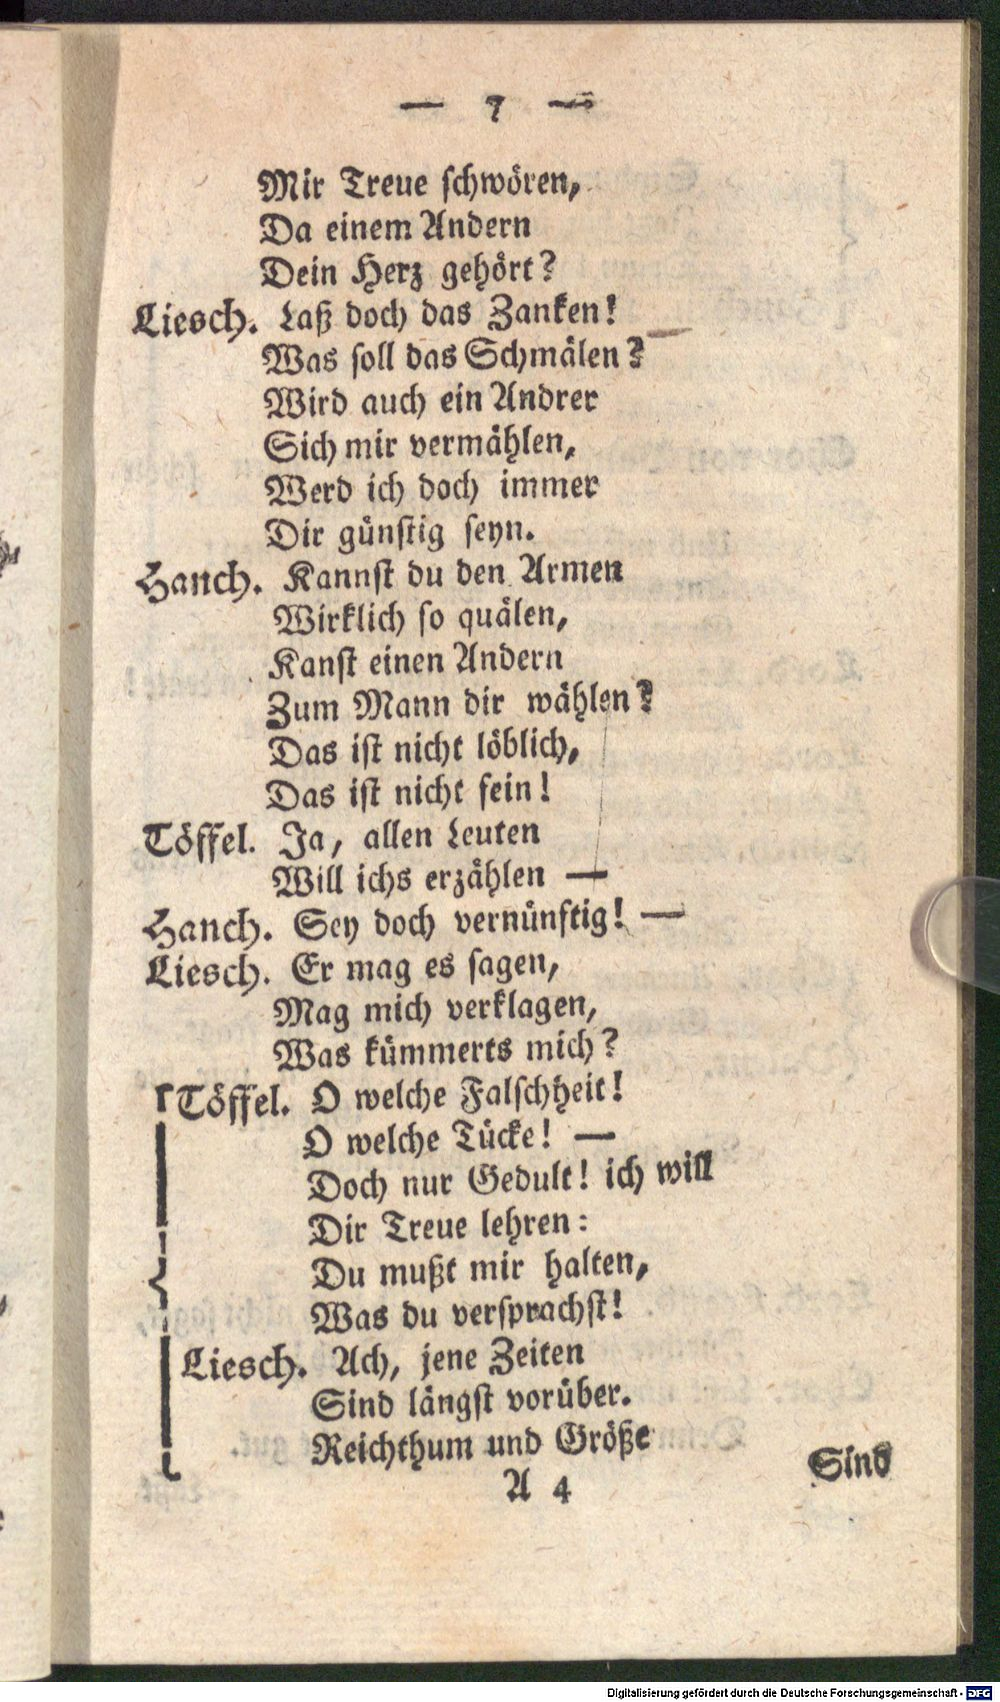 — 7 —
Mir Treue schwören,
Da einem Andern
Dein Herz gehört?
Liesch. Laß doch das Zanken!
Was soll das Schmälen?
Wird auch ein Andrer
Sich mir vermählen,
Werd ich doch immer
Dir günstig seyn.
Hanch. Kannst du den Armen
Wirklich so quälen,
Kanst einen Andern
Zum Mann dir wählen?
Das ist nicht löblich,
Das ist nicht fein!
Töffel. Ja, allen Leuten
Will ichs erzählen —
Hanch. Sey doch vernünftig! —
Liesch. Er mag es sagen,
Mag mich verklagen,
Was kümmerts mich?
Töffel. O welche Falschheit!
O welche Tücke! —
Doch nur Gedult! ich will
Dir Treue lehren:
Du mußt mir halten,
Was du versprachst!
Liesch. Ach, jene Zeiten
Sind längst vorüber.
Reichthum und Größe
A 4 Sind
Digitalisierung gefördert durch die Deutsche Forschungsgemeinschaft - DFG